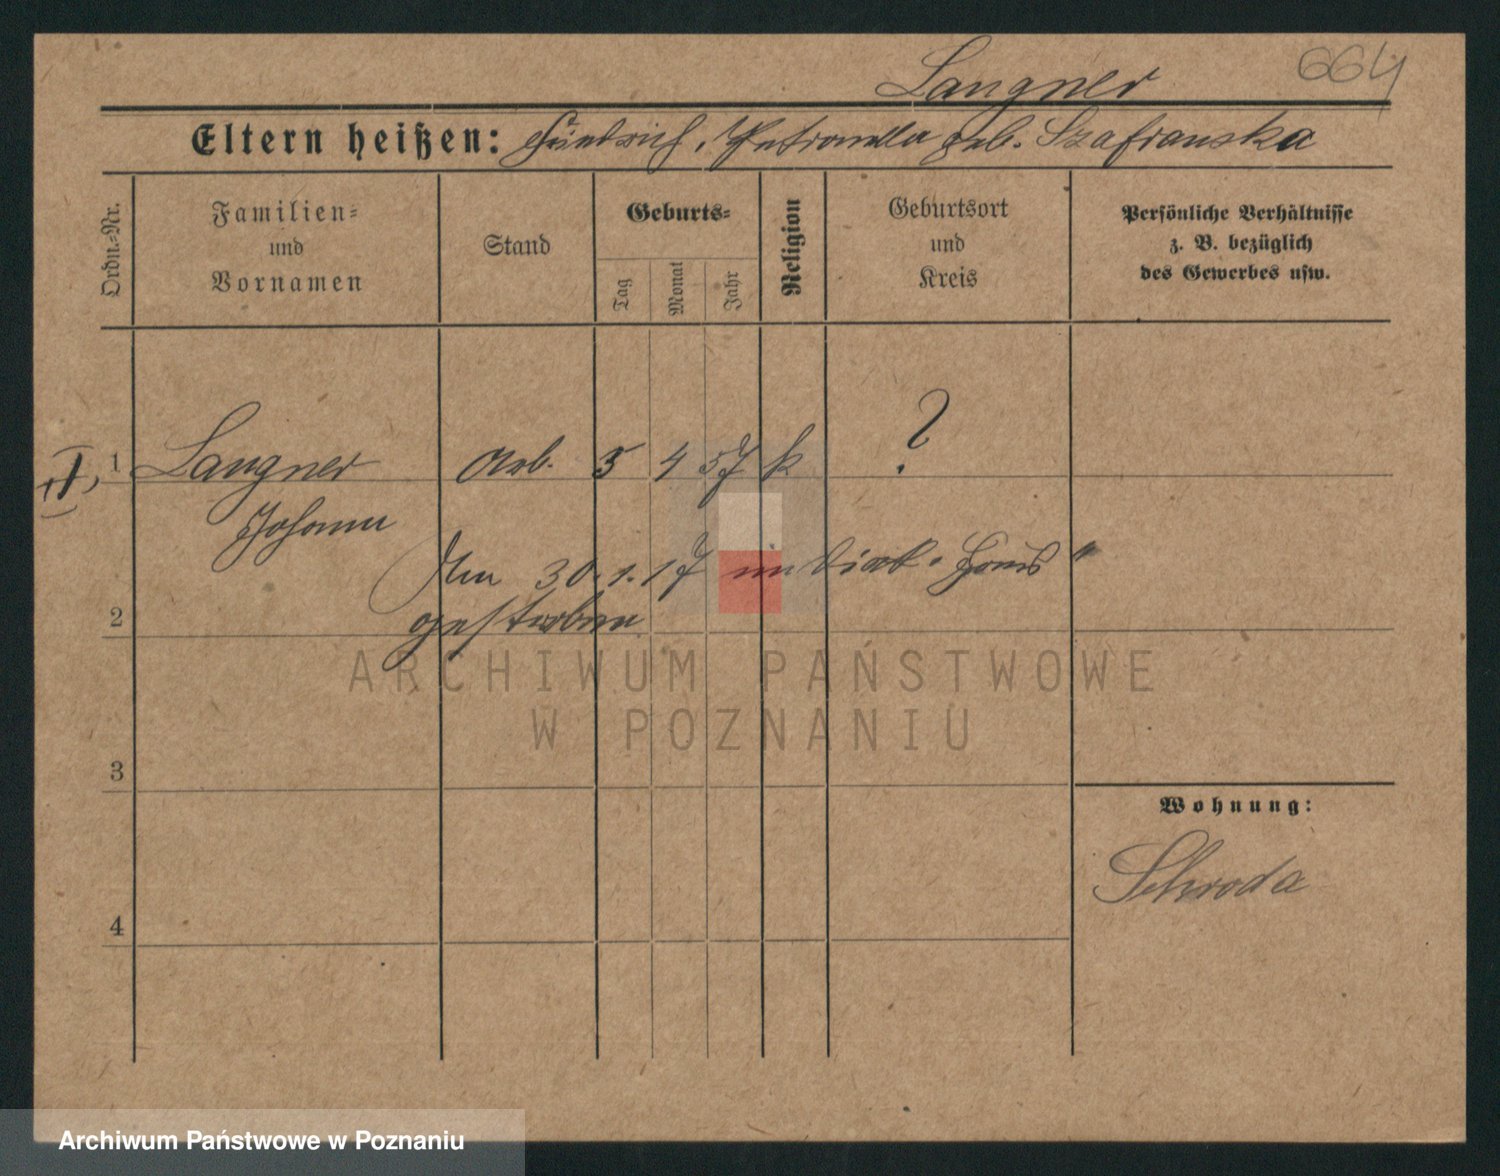 664
Langner
Eltern heißen: Friedrich, Petronella geb. Szafranska
Ordn.-Nr.
Familien-
und
Vornamen
Stand
Geburts-
Tag
Monat
Jahr
Religion
Geburtsort
und
Kreis
Persönliche Verhältnisse
z. B. bezüglich
des Gewerbes usw.
II, 1 Langner Arb. 5 4 57 k ?
Johann
Am 30.1.17 im Diak. Haus
gestorben
2
3
4
Wohnung:
Schroda
ARCHIWUM PAŃSTWOWE
W POZNANIU
Archiwum Państwowe w Poznaniu